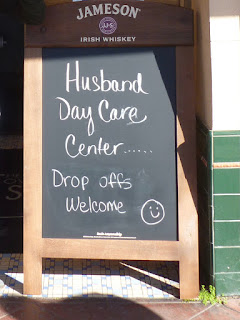 JAMESON
J.J.&S
IRISH WHISKEY
Husband
Day Care
Center......
Drop offs
Welcome
taste responsibly.